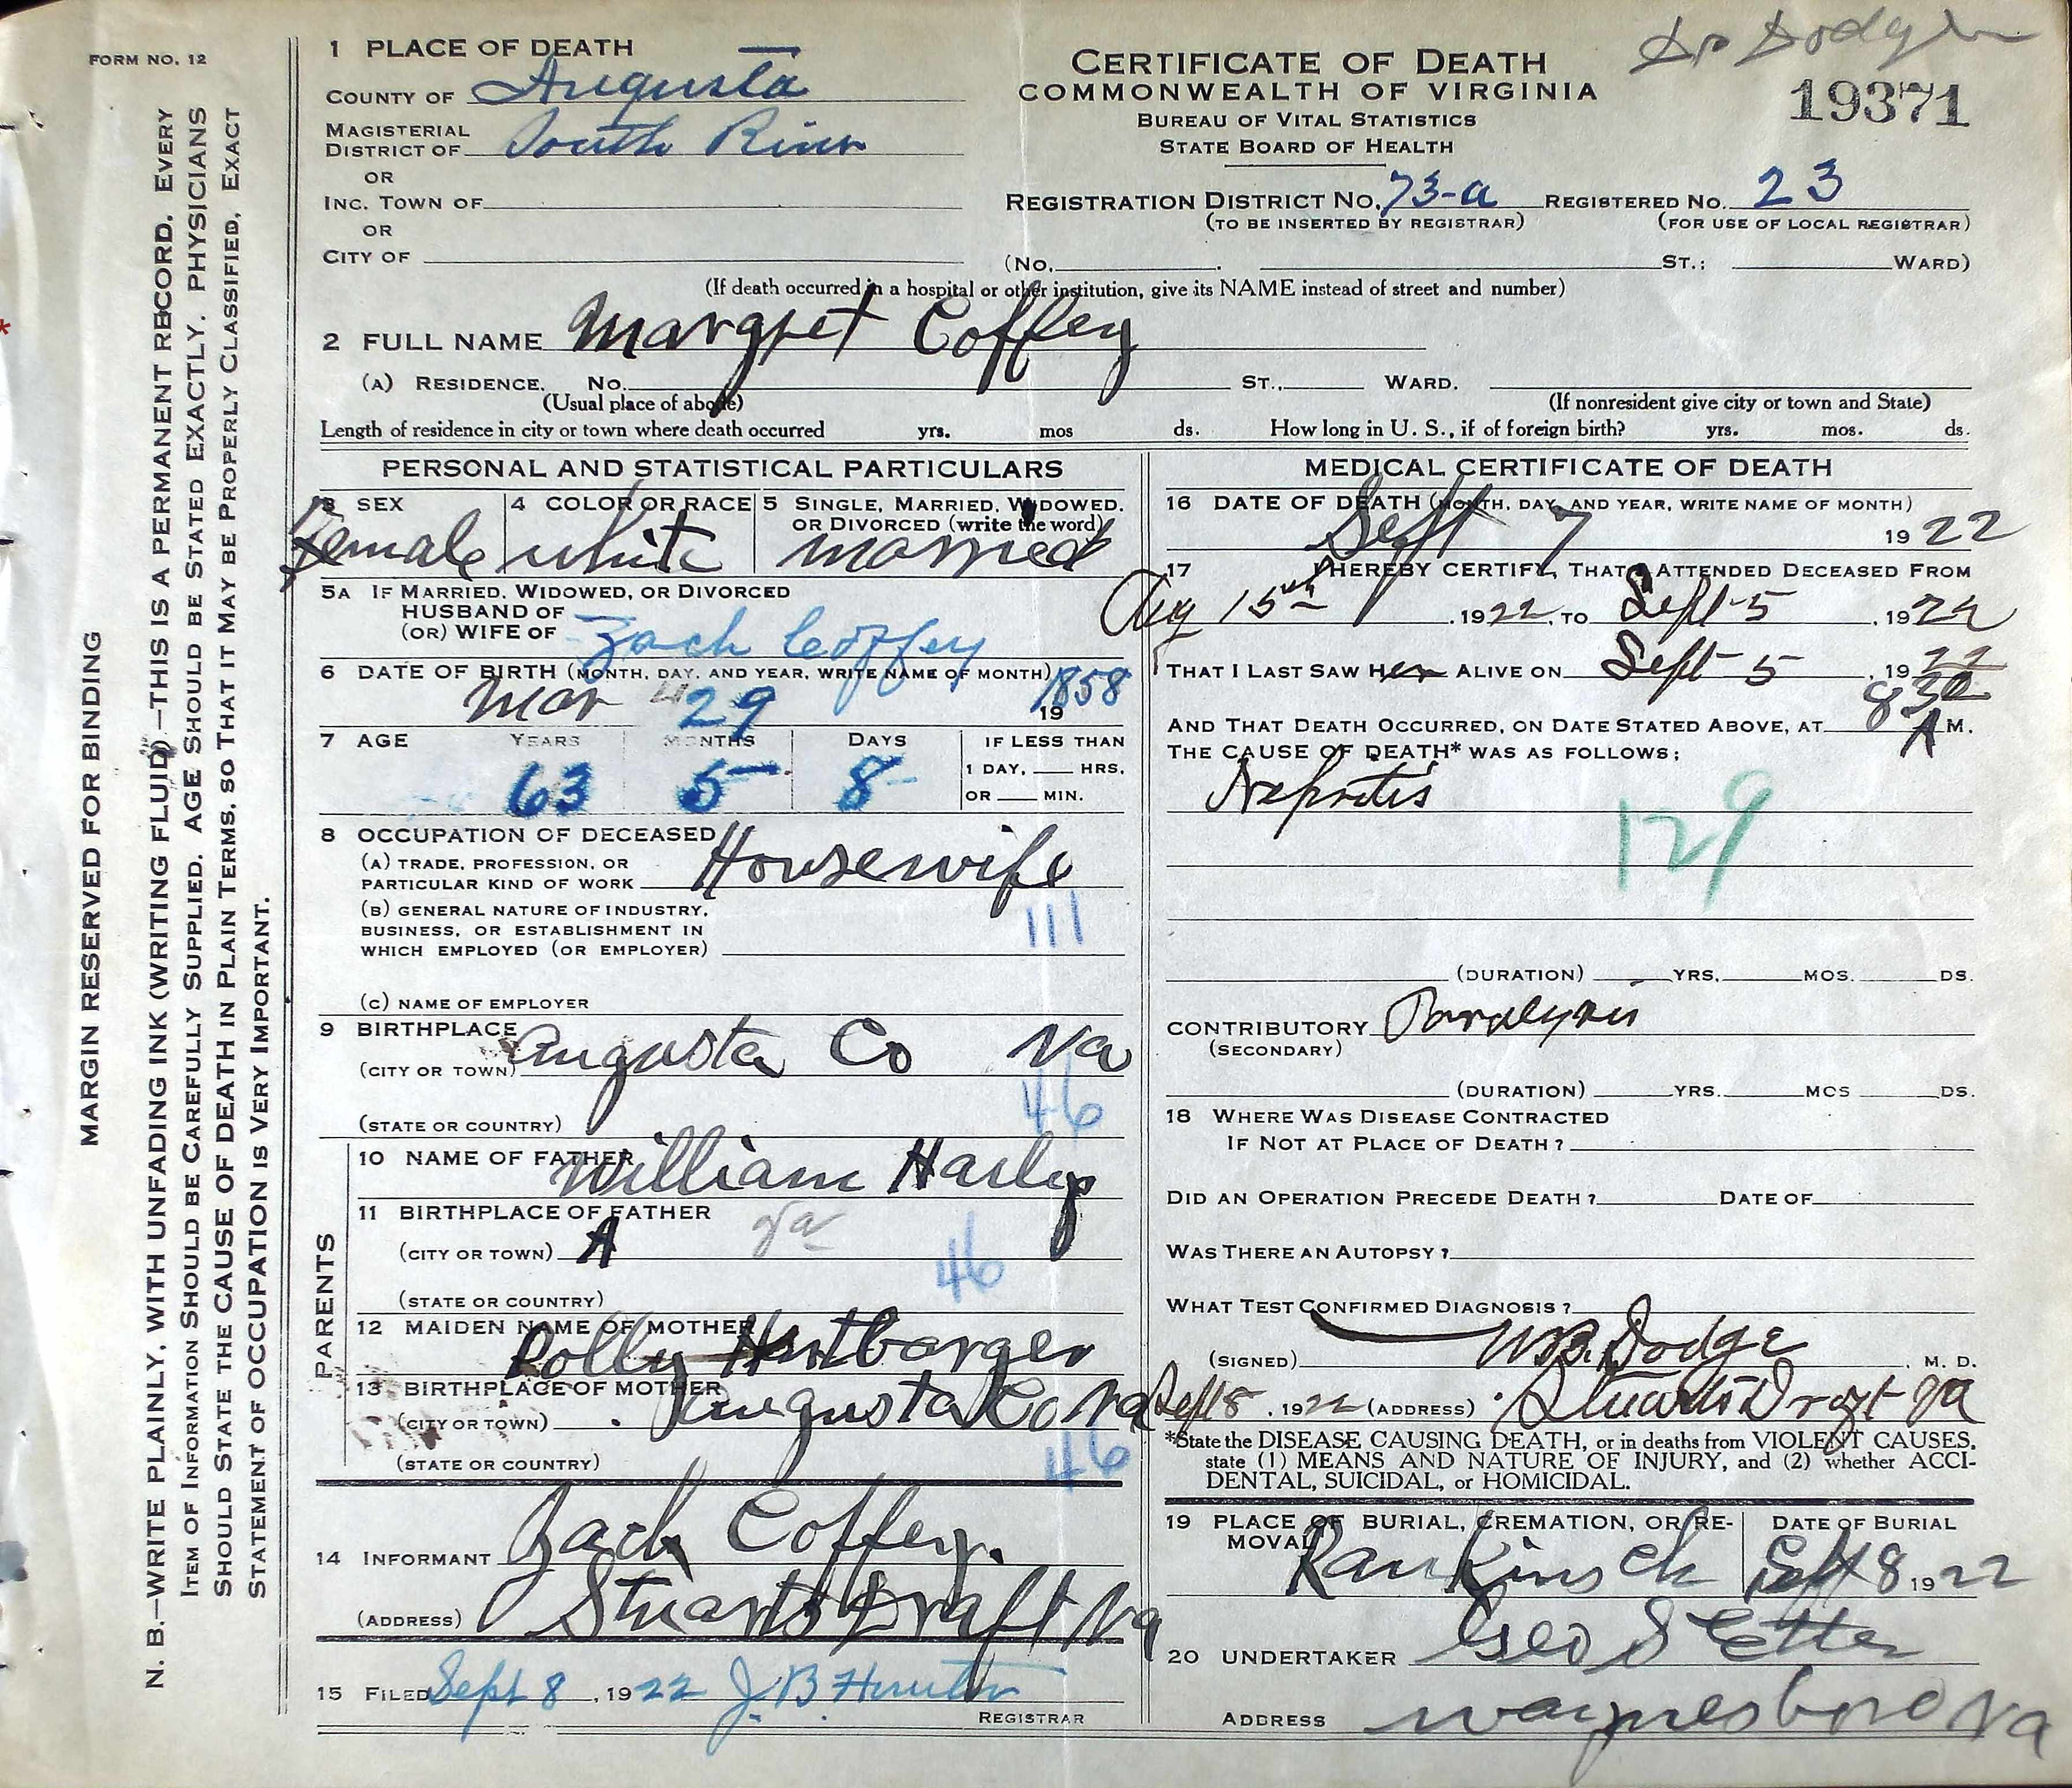 FORM NO. 12
MARGIN RESERVED FOR BINDING
N. B.—WRITE PLAINLY, WITH UNFADING INK (WRITING FLUID)—THIS IS A PERMANENT RECORD. EVERY
ITEM OF INFORMATION SHOULD BE CAREFULLY SUPPLIED. AGE SHOULD BE STATED EXACTLY. PHYSICIANS
SHOULD STATE THE CAUSE OF DEATH IN PLAIN TERMS, SO THAT IT MAY BE PROPERLY CLASSIFIED. EXACT
STATEMENT OF OCCUPATION IS VERY IMPORTANT.
1 PLACE OF DEATH
COUNTY OF Augusta
MAGISTERIAL
DISTRICT OF South River
OR
INC. TOWN OF
OR
CITY OF
Dr Dodge
CERTIFICATE OF DEATH
COMMONWEALTH OF VIRGINIA
BUREAU OF VITAL STATISTICS
STATE BOARD OF HEALTH
19371
REGISTRATION DISTRICT NO. 73-a REGISTERED NO. 23
(TO BE INSERTED BY REGISTRAR) (FOR USE OF LOCAL REGISTRAR)
(No. ST.; WARD)
(If death occurred in a hospital or other institution, give its NAME instead of street and number)
2 FULL NAME Margret Coffey
(A) RESIDENCE. No. ST., WARD.
(Usual place of abode) (If nonresident give city or town and State)
Length of residence in city or town where death occurred yrs. mos ds. How long in U. S., if of foreign birth? yrs. mos. ds.
PERSONAL AND STATISTICAL PARTICULARS
3 SEX 4 COLOR OR RACE 5 SINGLE, MARRIED, WIDOWED.
OR DIVORCED (write the word)
Female white married
5A IF MARRIED, WIDOWED, OR DIVORCED
HUSBAND OF
(OR) WIFE OF Zach Coffey
6 DATE OF BIRTH (MONTH, DAY, AND YEAR, WRITE NAME OF MONTH)
Mar 29 19 1858
7 AGE YEARS MONTHS DAYS IF LESS THAN
1 DAY, HRS,
OR MIN.
63 5 8
8 OCCUPATION OF DECEASED
(A) TRADE, PROFESSION, OR
PARTICULAR KIND OF WORK Housewife
(B) GENERAL NATURE OF INDUSTRY,
BUSINESS, OR ESTABLISHMENT IN
WHICH EMPLOYED (OR EMPLOYER)
111
(C) NAME OF EMPLOYER
9 BIRTHPLACE
(CITY OR TOWN) Augusta Co Va
46
(STATE OR COUNTRY)
PARENTS
10 NAME OF FATHER William Harlep
11 BIRTHPLACE OF FATHER
(CITY OR TOWN) A Va
46
(STATE OR COUNTRY)
12 MAIDEN NAME OF MOTHER
Polly Hurtbarger
13 BIRTHPLACE OF MOTHER
(CITY OR TOWN) Augusta Co Va
46
(STATE OR COUNTRY)
14 INFORMANT Zach Coffey.
(ADDRESS) Stuarts Draft Va
15 FILED Sept 8, 1922 J. B. Hunter
REGISTRAR
MEDICAL CERTIFICATE OF DEATH
16 DATE OF DEATH (MONTH, DAY, AND YEAR, WRITE NAME OF MONTH)
Sept 7 1922
17 I HEREBY CERTIFY, THAT I ATTENDED DECEASED FROM
Aug 15th, 1922, TO Sept 5, 1922
THAT I LAST SAW Her ALIVE ON Sept 5, 1922
AND THAT DEATH OCCURRED, ON DATE STATED ABOVE, AT 8 30 A M.
THE CAUSE OF DEATH* WAS AS FOLLOWS:
Nephritis
129
(DURATION) YRS. MOS. DS.
CONTRIBUTORY Paralysis
(SECONDARY)
(DURATION) YRS. MOS DS.
18 WHERE WAS DISEASE CONTRACTED
IF NOT AT PLACE OF DEATH?
DID AN OPERATION PRECEDE DEATH? DATE OF
WAS THERE AN AUTOPSY?
WHAT TEST CONFIRMED DIAGNOSIS?
(SIGNED) W.B. Dodge, M. D.
Sept 8, 1922 (ADDRESS) Stuarts Draft Va
*State the DISEASE CAUSING DEATH, or in deaths from VIOLENT CAUSES,
state (1) MEANS AND NATURE OF INJURY, and (2) whether ACCI-
DENTAL, SUICIDAL, or HOMICIDAL.
19 PLACE OF BURIAL, CREMATION, OR RE- DATE OF BURIAL
MOVAL
Rankins Ch Sept 8 1922
20 UNDERTAKER Geo S Etter
ADDRESS Waynesboro Va